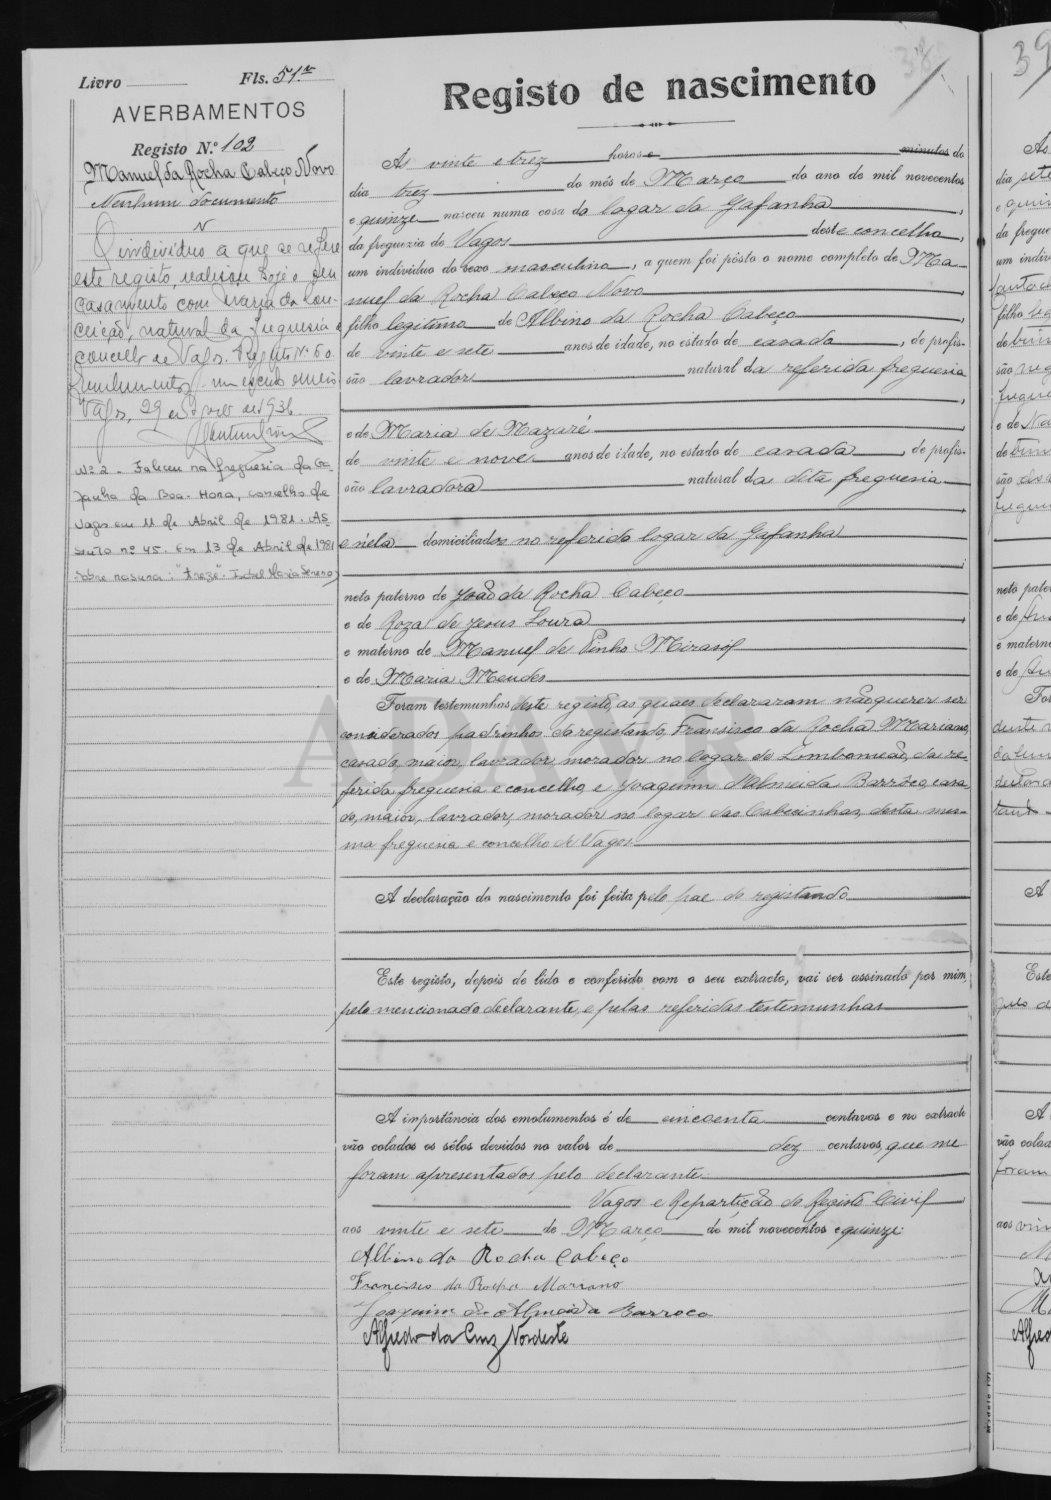 Livro Fls. 51 v
AVERBAMENTOS
Registo N.º 102
Manuel da Rocha Cabeço Novo
Nenhum documento
O individuo a que se refere
este registo, realisou hoje o seu
casamento com Maria da Con-
ceição, natural da freguesia e
concelho de Vagos. Registo Nº 60.
Emolumentos um escudo e meio
Vagos, 29 de de 1936.
Nº 2 - Faleceu na freguesia da Ga-
fanha da Boa-Hora, concelho de
Vagos em 11 de Abril de 1981. As-
sento nº 45. Em 13 de Abril de 1981
Sobre rasura: "treze". Isabel Maria
38
Registo de nascimento
Ás vinte e trez horas e minutos do
dia trez do mês de Março do ano de mil novecentos
e quinze nasceu numa casa do logar da Gafanha,
da freguezia de Vagos deste concelho,
um individuo do sexo masculino, a quem foi pôsto o nome completo de Ma-
nuel da Rocha Cabeço Novo,
filho legitimo de Albino da Rocha Cabeço,
de vinte e sete anos de idade, no estado de casado, de profis-
são lavrador natural da referida freguesia
,
e de Maria de Nazaré
de vinte e nove anos de idade, no estado de casada, de profis-
são lavradora natural da dita freguesia
e n'ela domiciliados no referido logar da Gafanha
;
neto paterno de João da Rocha Cabeço
e de Roza de Jesus Loura,
e materno de Manuel de Pinho Mirasol
e de Maria Mendes
Foram testemunhas deste registo, as quaes declararam não querer ser
considerados padrinhos do registando, Fransisco da Rocha Mariano,
casado, maior, lavrador, morador no logar de Lombomeão, da re-
ferida freguesia e concelho, e Joaquim d'Almeida Barrôco, casa-
do, maior, lavrador, morador no logar das Cabecinhas, desta mes-
ma freguesia e concelho de Vagos
A declaração do nascimento foi feita pelo pae do registando
Este registo, depois de lido e conferido com o seu extracto, vai ser assinado por mim,
pelo mencionado declarante, e pelas referidas testemunhas
A importância dos emolumentos é de cincoenta centavos e no extracto
vão colados os sêlos devidos no valor de dez centavos, que me
foram apresentados pelo declarante
Vagos e Repartição do Registo Civil
aos vinte e sete de Março de mil novecentos e quinze
Albino da Rocha Cabeço
Francisco da Rocha Mariano
Joaquim de Almeida Barroco
Alfredo da Cruz Nordeste
ADAVR
39